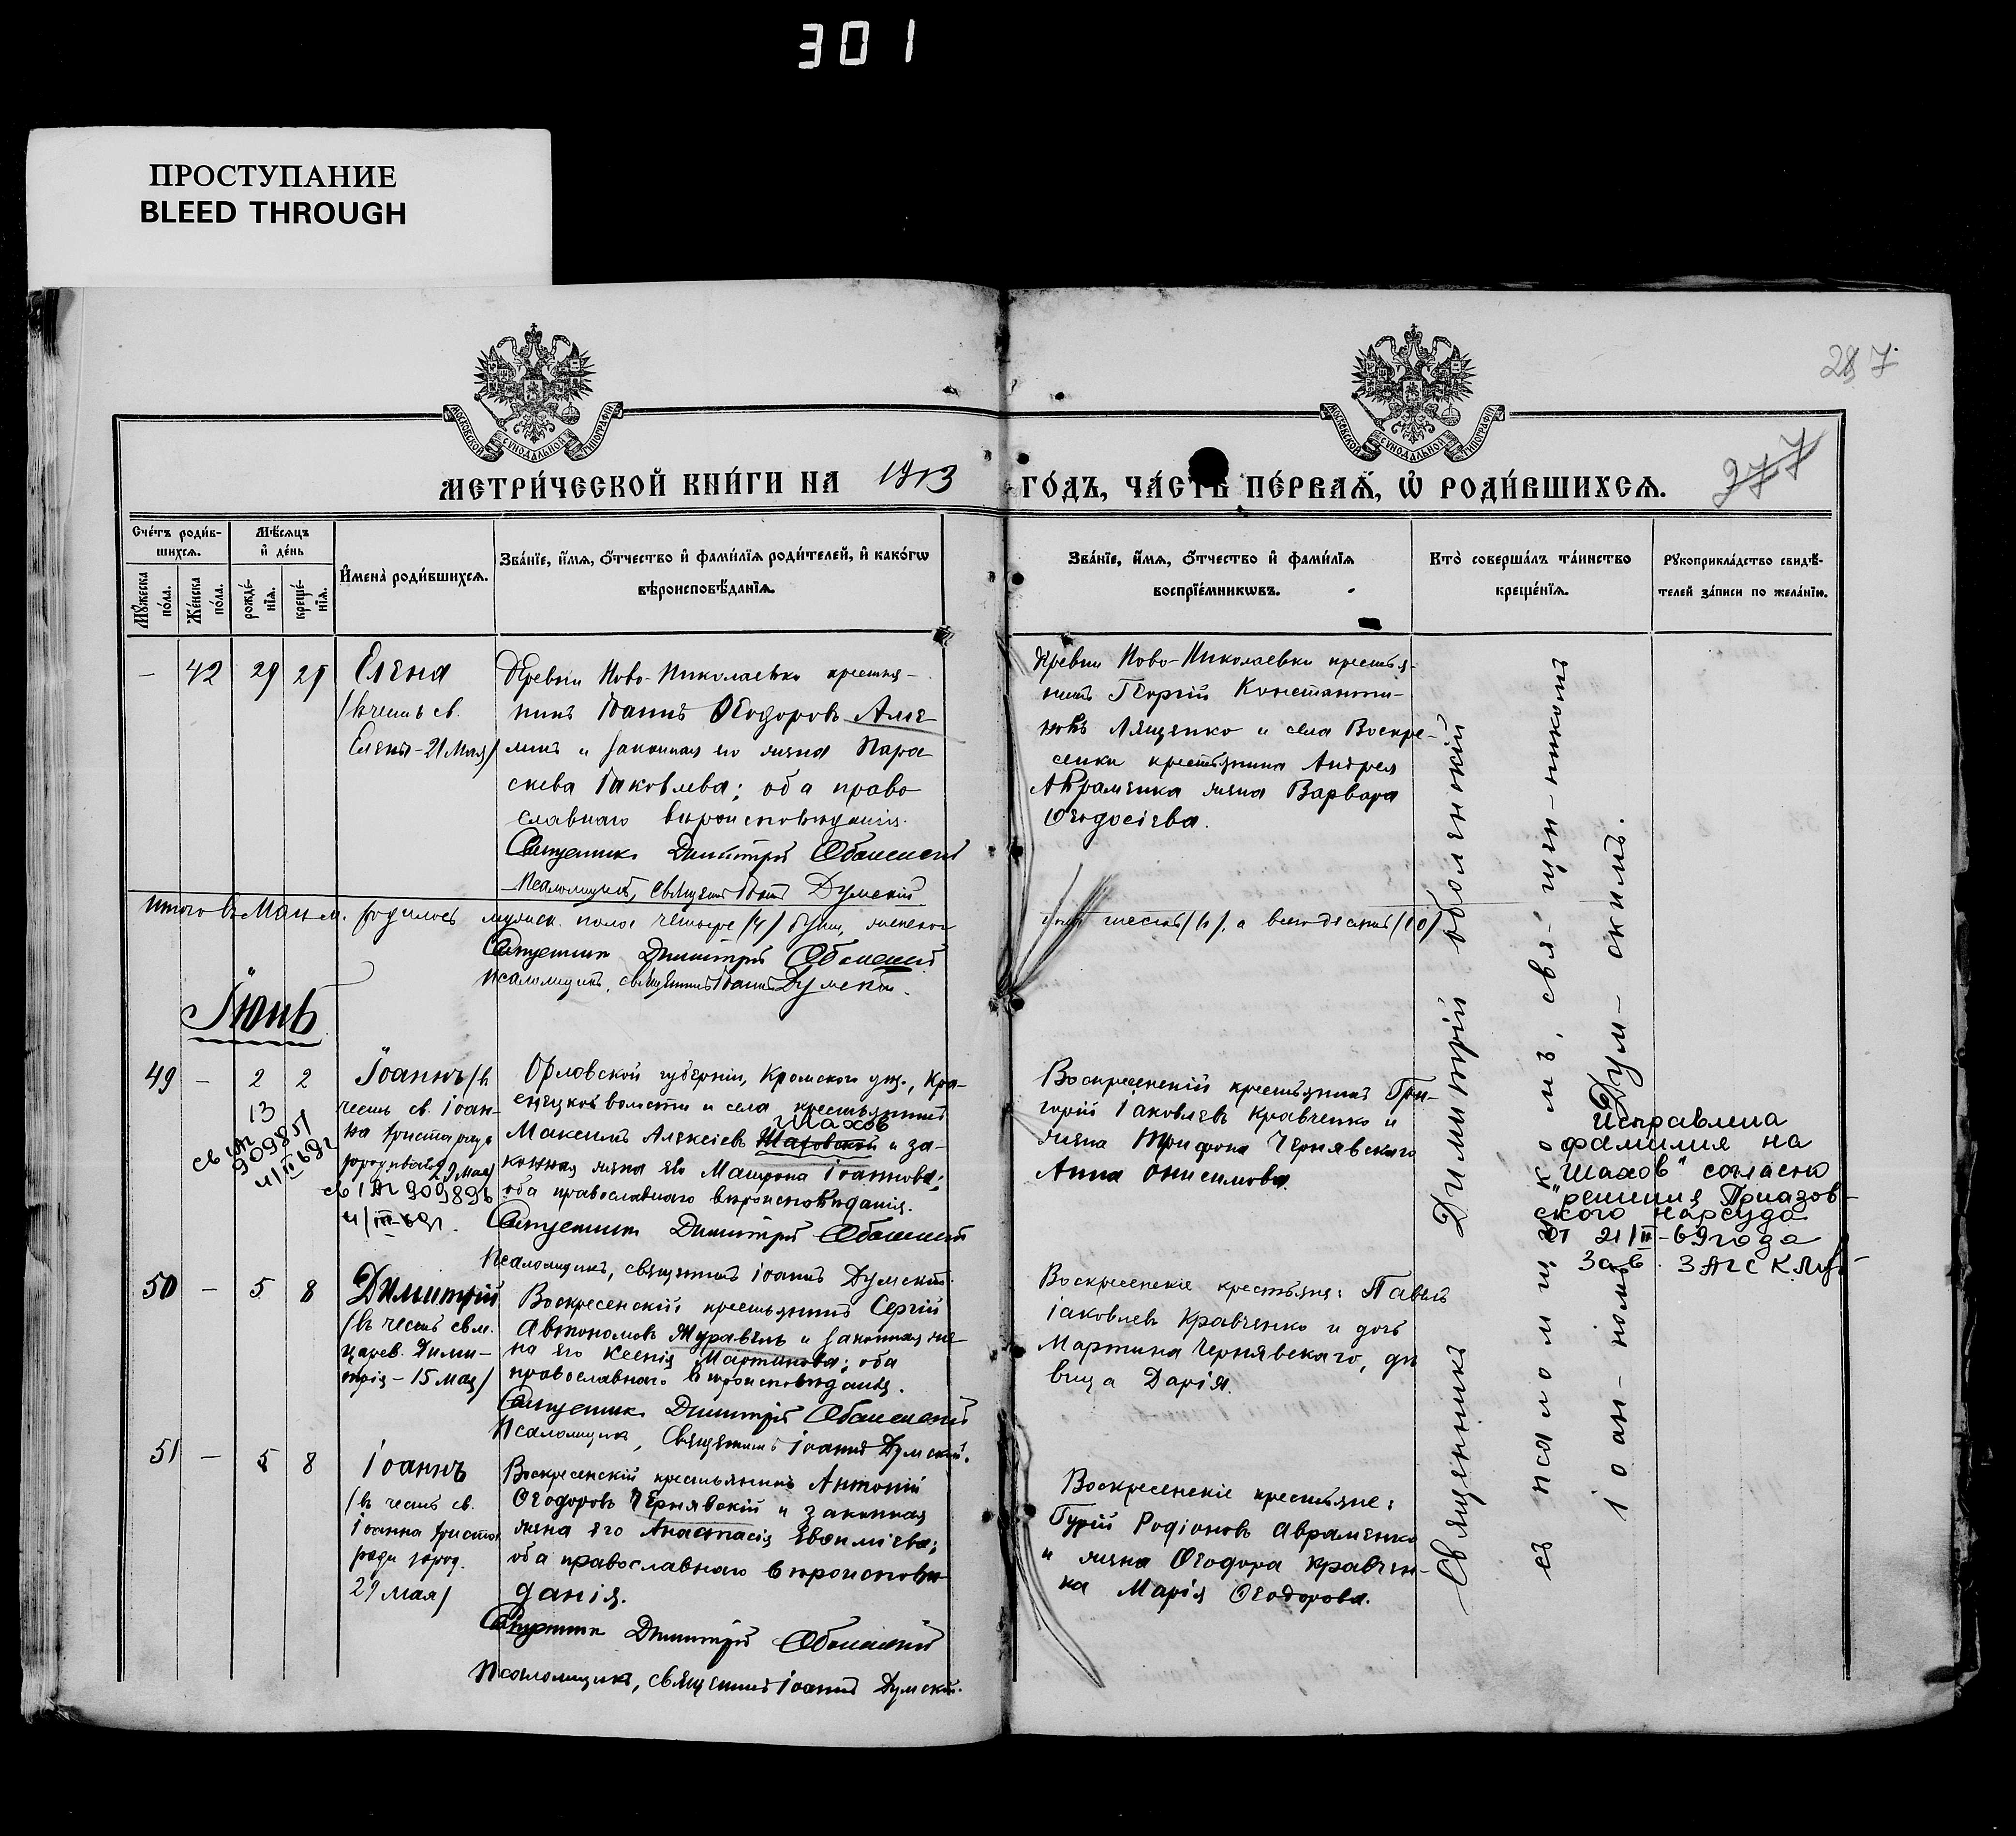 301
ПРОСТУПАНИЕ
BLEED THROUGH
МОСКОВСКОЙ СѴНОДАЛЬНОЙ ТИПОГРАФІИ
МОСКОВСКОЙ СѴНОДАЛЬНОЙ ТИПОГРАФІИ
287
277
МЕТРИ́ЧЕСКОЙ КНИ́ГИ НА 1913 ГО́ДЪ, ЧА́СТЬ ПЕ́РВАѦ, Ѡ РОДИ́ВШИХСѦ.
Сче́тъ роди́в-
шихсѧ.
Мꙋ́жеска по́ла.
Же́нска по́ла.
Мѣ́сѧцъ
и҆ де́нь
рожде́-
нїѧ.
креще́-
нїѧ.
И҆мена̀ роди́вшихсѧ.
Зва́нїе, и҆́мѧ, ѻ҆́тчество и҆ фами́лїѧ роди́телей, и҆ како́гѡ
вѣроисповѣ́данїѧ.
Зва́нїе, и҆́мѧ, ѻ҆́тчество и҆ фами́лїѧ
воспрїе́мникѡвъ.
Кто̀ соверша́лъ та́инство
креще́нїѧ.
Рꙋкоприкла́дство свидѣ́-
телей за́писи по жела́нїю.
— 42 29 29
Елена
/въ честь св.
Елены - 21 Мая/
Деревни Ново-Николаевки крестья-
нинъ Іоаннъ Ѳеодоровъ Але-
минъ и законная его жена Пара-
скева Іаковлева; оба право
славнаго вѣроисповѣданія.
Священникъ Димитрій Оболенскій
Псаломщикъ, священникъ Іоаннъ Думскій.
Деревни Ново-Николаевки крестья-
нинъ Георгій Константи-
новъ Лященко и села Воскре-
сенки крестьянина Андрея
Авраменка жена Варвара
Ѳеодосіева.
Итого въ Маѣ м. родилось мужск. пола четыре /4/ души, женскаго
шесть /6/, а всего десять /10/
Священникъ Димитрій Оболенскій
Псаломщикъ, священникъ Іоаннъ Думскій.
Іюнь
49 — 2 2
Іоаннъ /въ
честь св. Іоан-
на Христа ради
юродиваго 29 мая/
13
909851
909896
Орловской губерніи, Кромского уѣз., Кра-
волости и села крестьянинъ
Шахов
Максимъ Алексіевъ Шаховской и за-
конная жена его Матрона Іоаннова;
оба православнаго вѣроисповѣданія.
Священникъ Димитрій Оболенскій
Псаломщикъ, священникъ Іоаннъ Думскій.
Воскресенскій крестьянинъ Гри-
горій Іаковлевъ Кравченко и
жена Трифона Чернявскаго
Анна Онисимова.
Исправлена
фамилия на
"Шахов" согласно
решения Приазов-
ского нарсуда
от 21/II-69 года
Зав. ЗАГС
50 — 5 8
Димитрій
/въ честь св. м.
царев. Дими-
трія - 15 мая/
Воскресенскій крестьянинъ Сергій
Автономовъ Журавель и законная же-
на его Ксенія Мартинова; оба
православнаго вѣроисповѣданія.
Священникъ Димитрій Оболенскій
Псаломщикъ, Священникъ Іоаннъ Думскій.
Воскресенскіе крестьяне: Павелъ
Іаковлевъ Кравченко и дочь
Мартина Чернявскаго, дѣ
вица Дарія.
51 — 5 8
Іоаннъ
/въ честь св.
Іоанна Христа
ради юрод.
29 мая/
Воскресенскій крестьянинъ Антоній
Ѳеодоровъ Чернявскій и законная
жена его Анастасія Евѳиміева;
оба православнаго вѣроисповѣ-
данія.
Священникъ Димитрій Оболенскій
Псаломщикъ, священникъ Іоаннъ Думскій.
Воскресенскіе крестьяне:
Гурій Родіоновъ Авраменко
и жена Ѳеодора Кравчен-
ка Марія Ѳеодорова.
Священникъ Димитрій Оболенскій
съ псаломщикомъ, свя- щен-никомъ
Іоан- номъ Дум- скимъ.